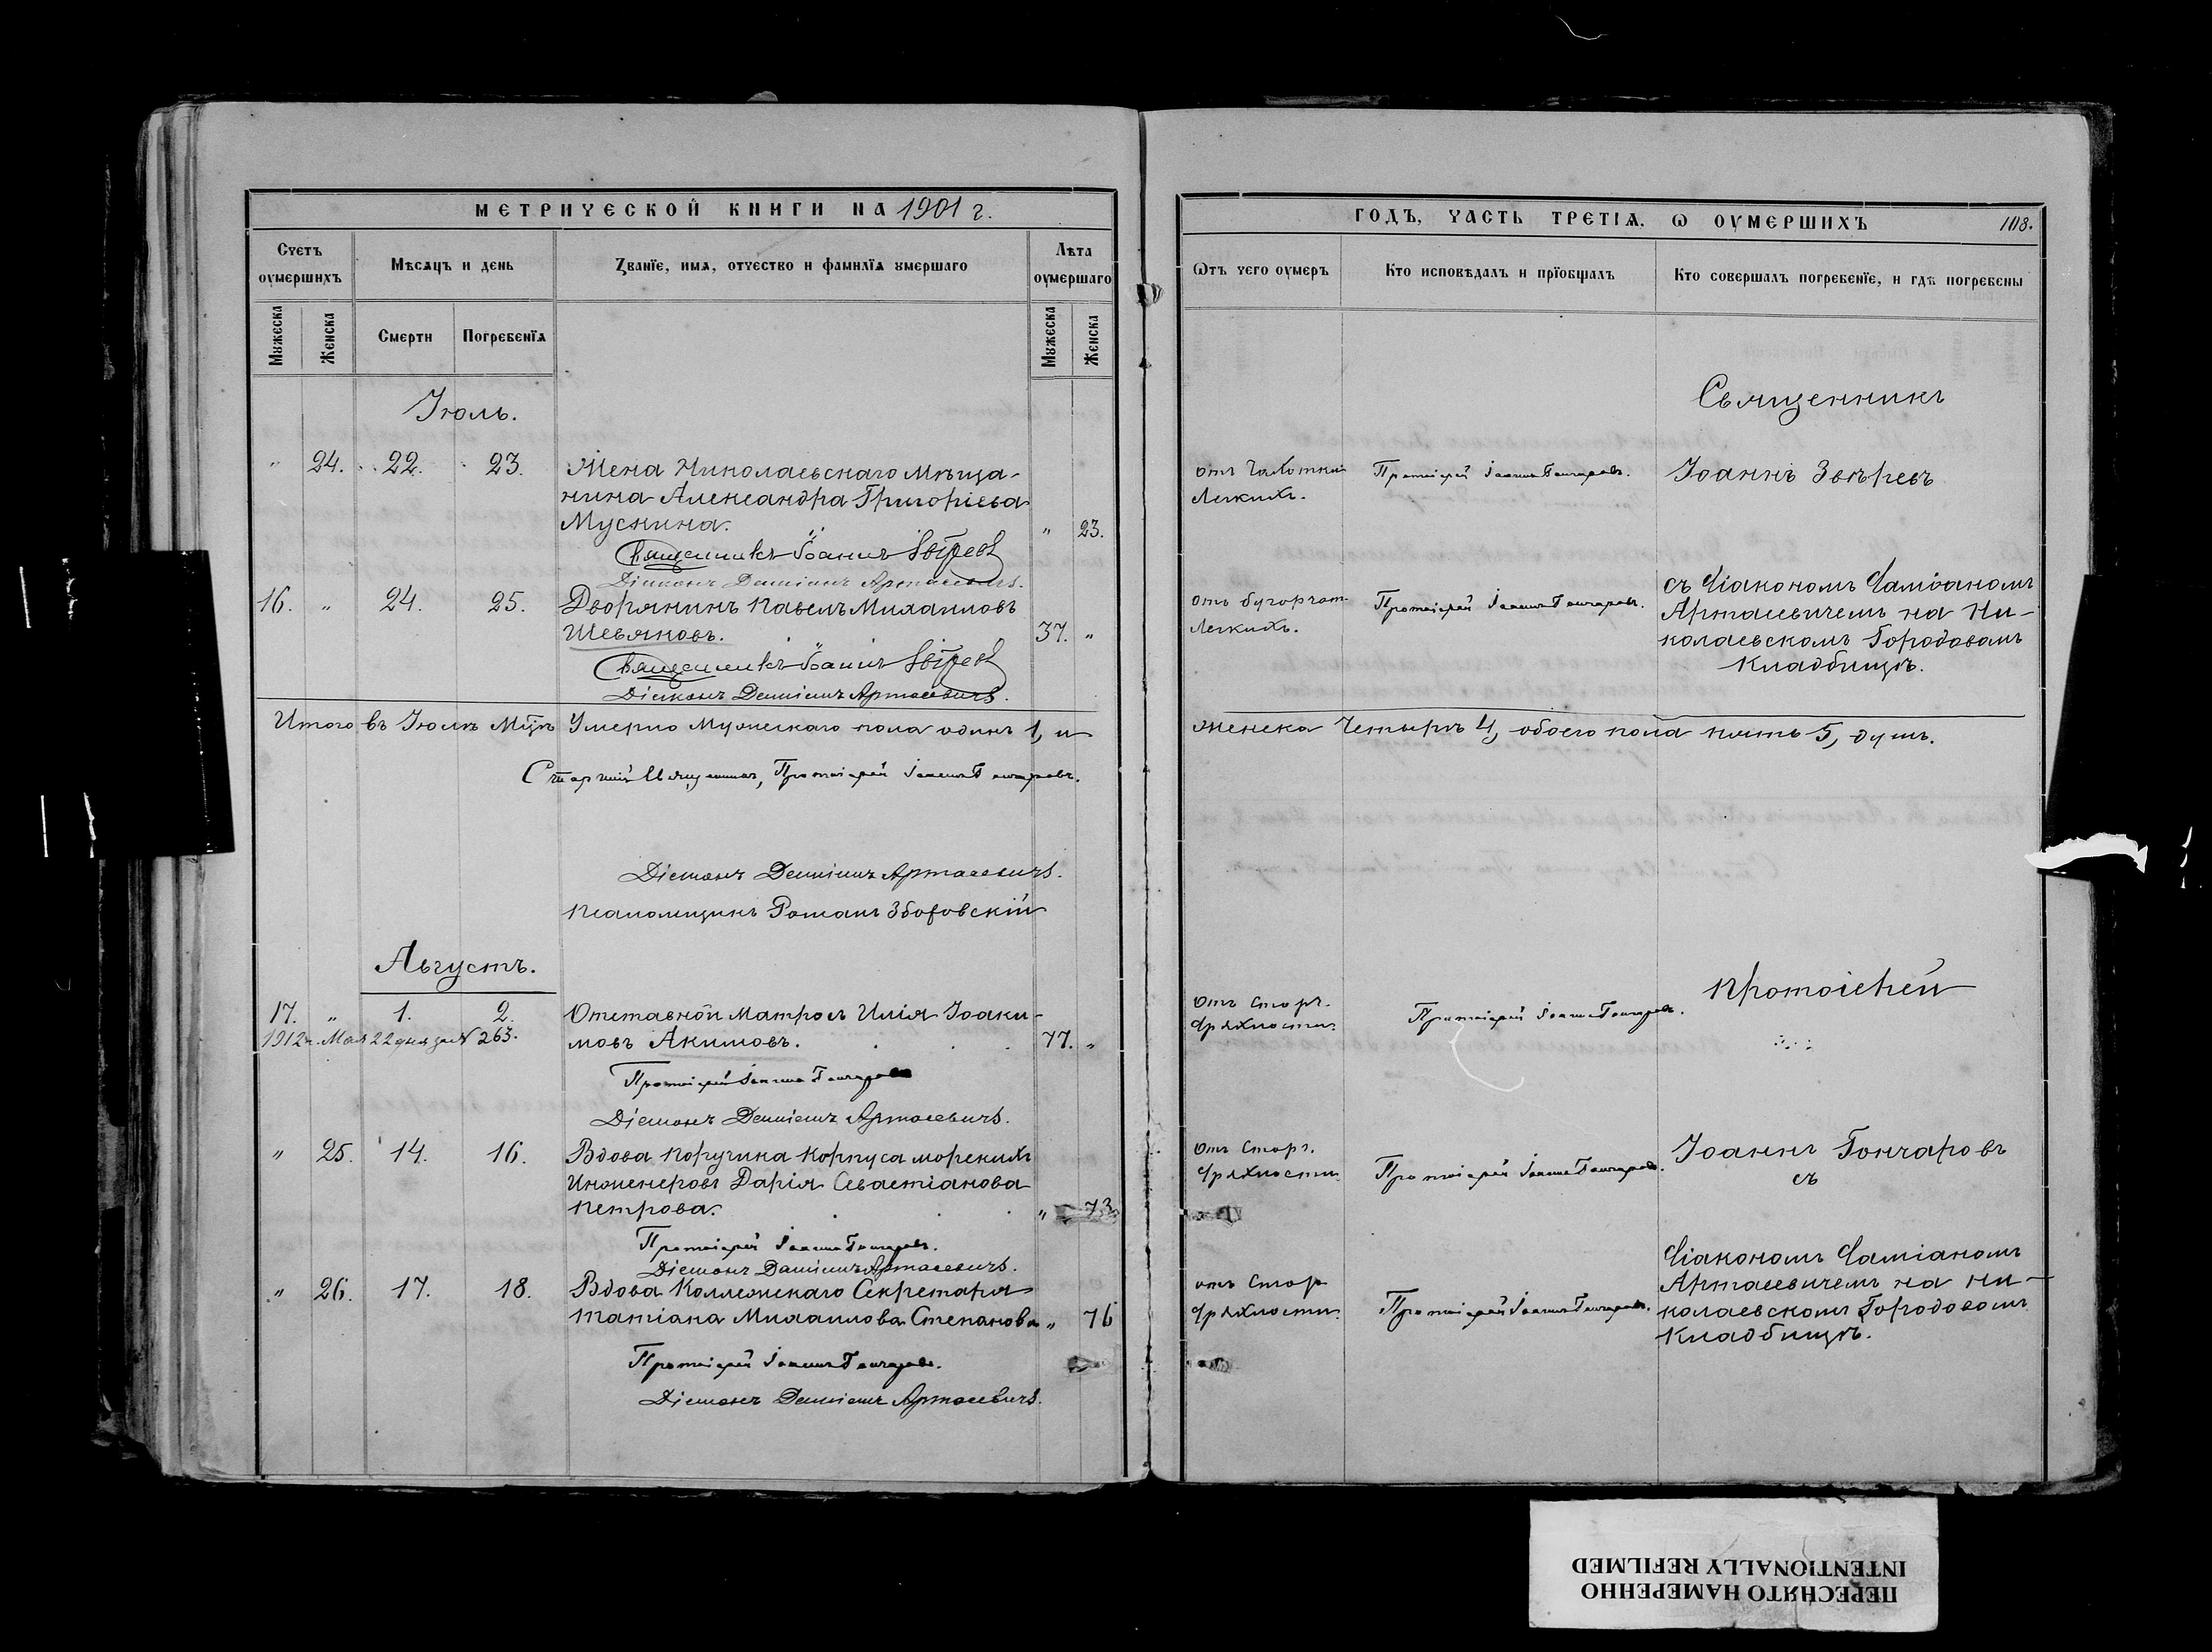 МЕТРИЧЕСКОЙ КНИГИ НА 1901 г.
Счетъ оумершихъ
Мѣсяцъ и день
Званїе, имя, отчество и фамилїя умершаго
Лѣта оумершаго
Мужеска
Женска
Смерти
Погребенїя
Мужеска
Женска
Іюль.
" 24. 22. 23. Жена Николаевскаго мѣща-
нина Александра Григоріева
Мускина. " 23.
Священникъ Іоаннъ Звѣревъ
Діаконъ Даміанъ Артасевичъ.
16. " 24. 25. Дворянинъ Павелъ Михаиловъ
Шевяковъ. 37. "
Священникъ Іоаннъ Звѣревъ
Діаконъ Даміанъ Артасевичъ.
Итого въ Іюлѣ м-цѣ Умерло Мужескаго пола одинъ 1, и
Старшій Священникъ, Протоіерей Іоаннъ Гончаровъ.
Діаконъ Даміанъ Артасевичъ.
Псаломщикъ Романъ Зборовскій
Августъ.
17. " 1. 2. Отставной Матросъ Илія Іоаки-
1912 г. Мая 22 дня за № 263. мовъ Акимовъ. 77. "
Протоіерей Іоаннъ Гончаровъ
Діаконъ Даміанъ Артасевичъ.
" 25. 14. 16. Вдова Поручика Корпуса морскихъ
Инженеровъ Дарія Севастіанова
Петрова. " 73.
Протоіерей Іоаннъ Гончаровъ.
Діаконъ Даміанъ Артасевичъ.
" 26. 17. 18. Вдова Коллежскаго Секретаря
Татіана Михаилова Степанова " 76
Протоіерей Іоаннъ Гончаровъ.
Діаконъ Даміанъ Артасевичъ.
ГОДЪ, ЧАСТЬ ТРЕТІЯ, Ѡ ОУМЕРШИХЪ 108.
Ѿтъ чего оумеръ
Кто исповѣдалъ и прїобщалъ
Кто совершалъ погребенїе, и гдѣ погребены
Священникъ
отъ Чахотки Протоіерей Іоаннъ Гончаровъ. Іоаннъ Звѣревъ
Легкихъ.
съ Діакономъ Даміаномъ
отъ бугорчат. Протоіерей Іоаннъ Гончаровъ. Артасевичемъ на Ни-
Легкихъ. колаевскомъ Городовомъ
Кладбищѣ.
женска Четырѣ 4, обоего пола пять 5, душъ.
Протоіерей
Отъ Стар. Протоіерей Іоаннъ Гончаровъ.
дряхлости.
Отъ Стар. Іоаннъ Гончаровъ
дряхлости. Протоіерей Іоаннъ Гончаровъ. съ
Діакономъ Даміаномъ
отъ Стар Артасевичемъ на Ни-
дряхлости. Протоіерей Іоаннъ Гончаровъ. колаевскомъ Городовомъ
Кладбищѣ.
ПЕРЕСНЯТО НАМЕРЕННО
INTENTIONALLY REFILMED